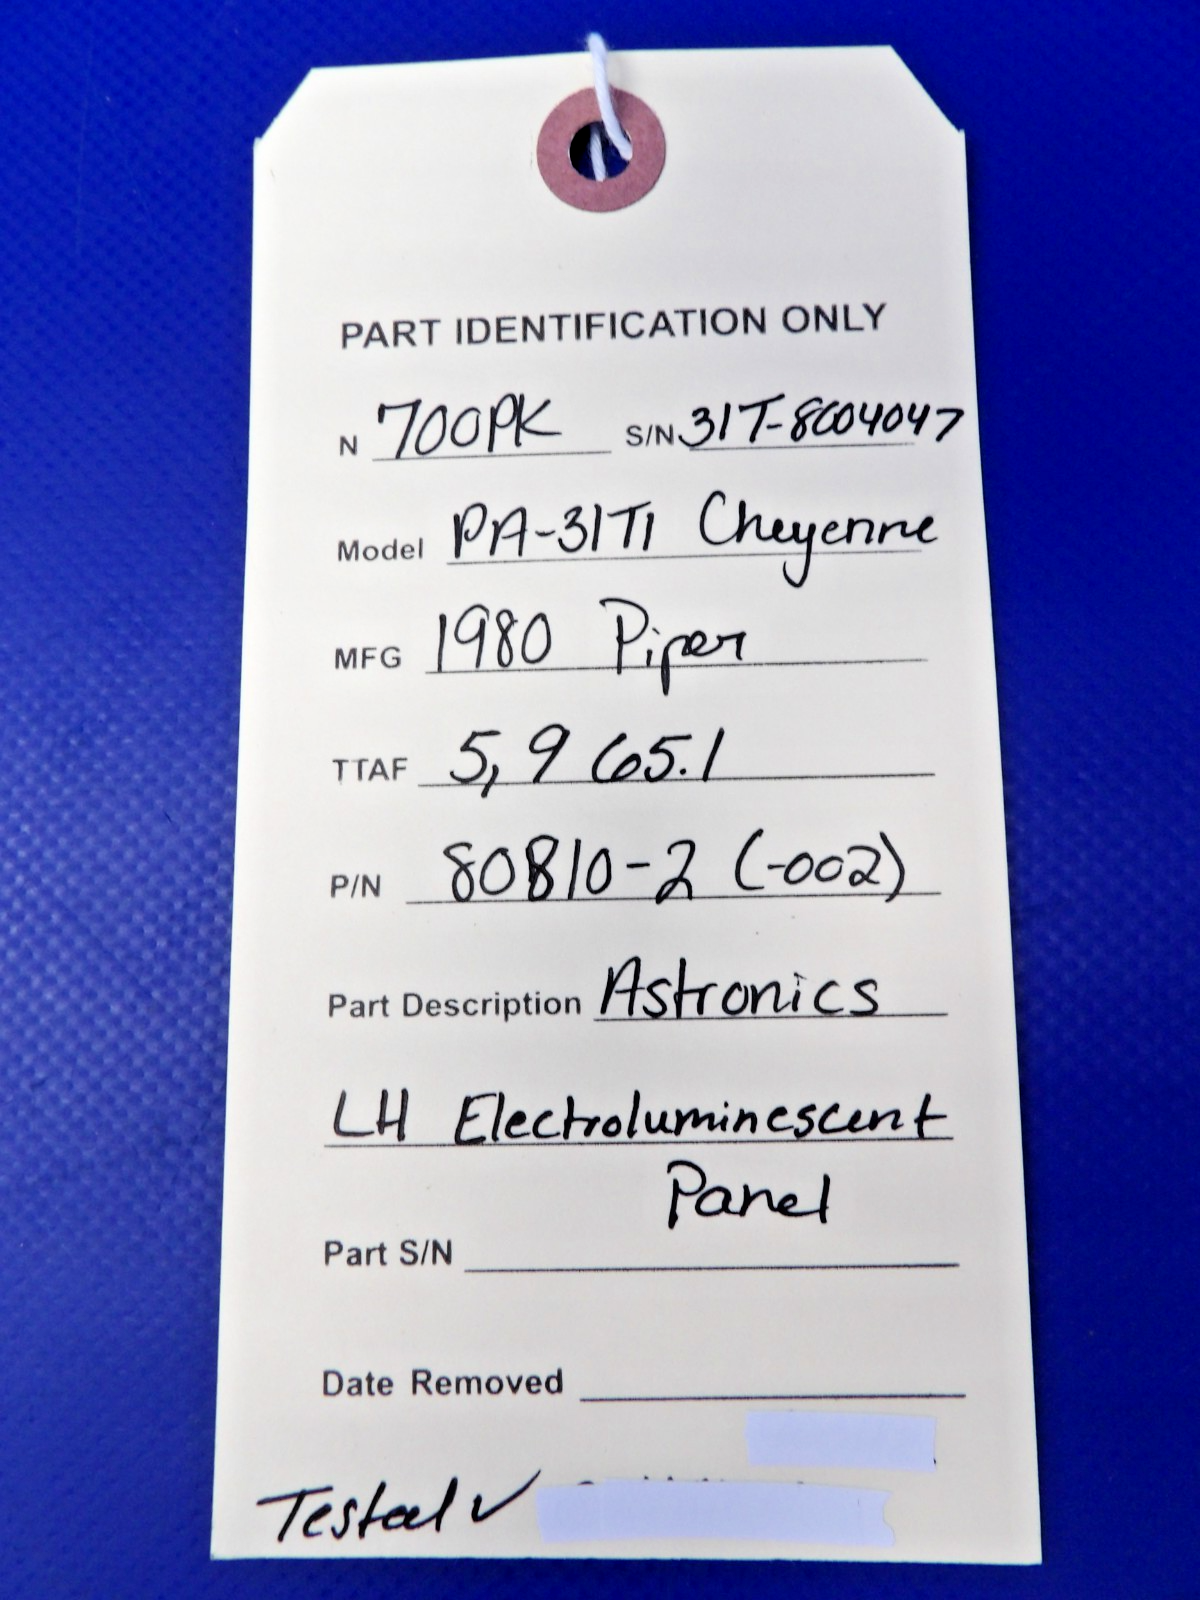 PART IDENTIFICATION ONLY
N 700PK S/N 31T-8004047
Model PA-31T1 Cheyenne
MFG 1980 Piper
TTAF 5,965.1
P/N 80810-2 (-002)
Part Description Astronics
LH Electroluminescent
Panel
Part S/N
Date Removed
Tested ✓